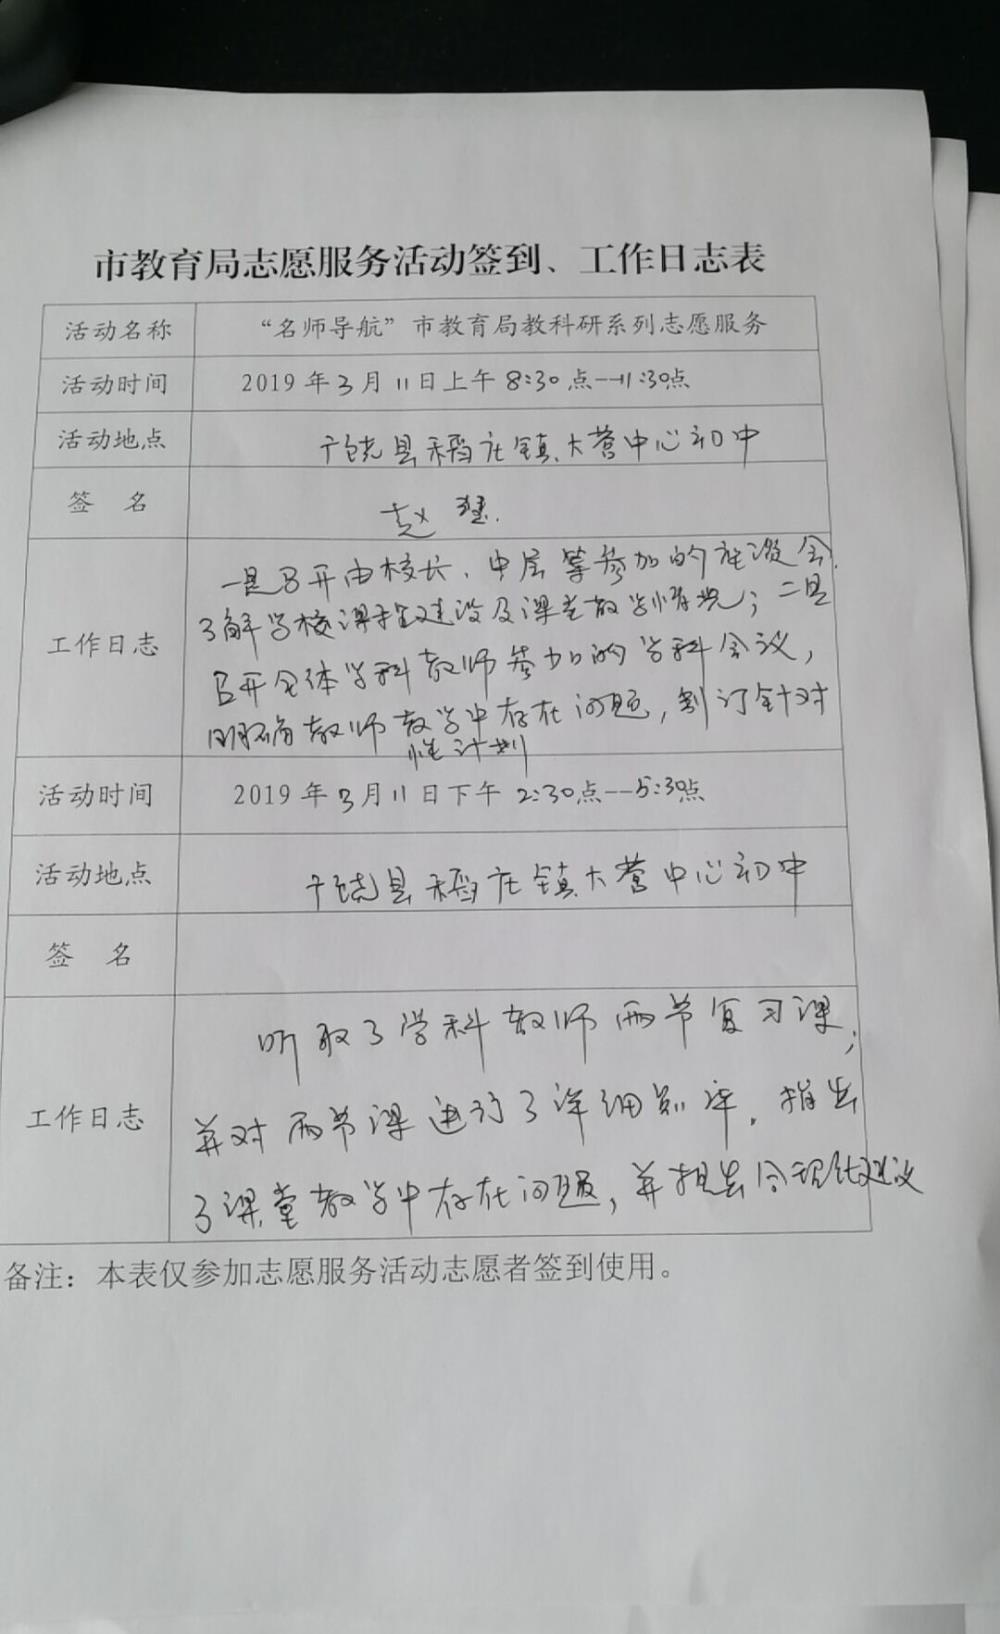 市教育局志愿服务活动签到、工作日志表
活动名称 “名师导航”市教育局教科研系列志愿服务
活动时间 2019年3月11日上午8:30点—11:30点
活动地点 广饶县稻庄镇大营中心初中
签 名 赵
工作日志
一是召开由校长、中层等参加的座谈会,
了解学校课程建设及课堂教学情况；二是
召开全体学科教师参加的学科会议，
明确教师教学中存在问题，制订针对
性计划
活动时间 2019年3月11日下午2:30点--5:30点
活动地点 广饶县稻庄镇大营中心初中
签 名
工作日志
听取了学科教师两节复习课，
并对两节课进行了详细评，指出
了课堂教学中存在问题，并提出合理化建议
备注：本表仅参加志愿服务活动志愿者签到使用。